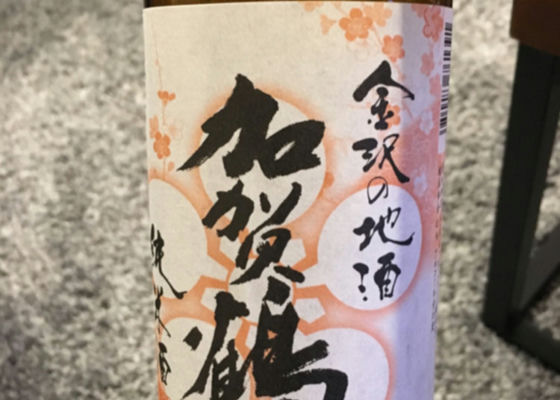 金沢の地酒
加賀鶴
純米酒